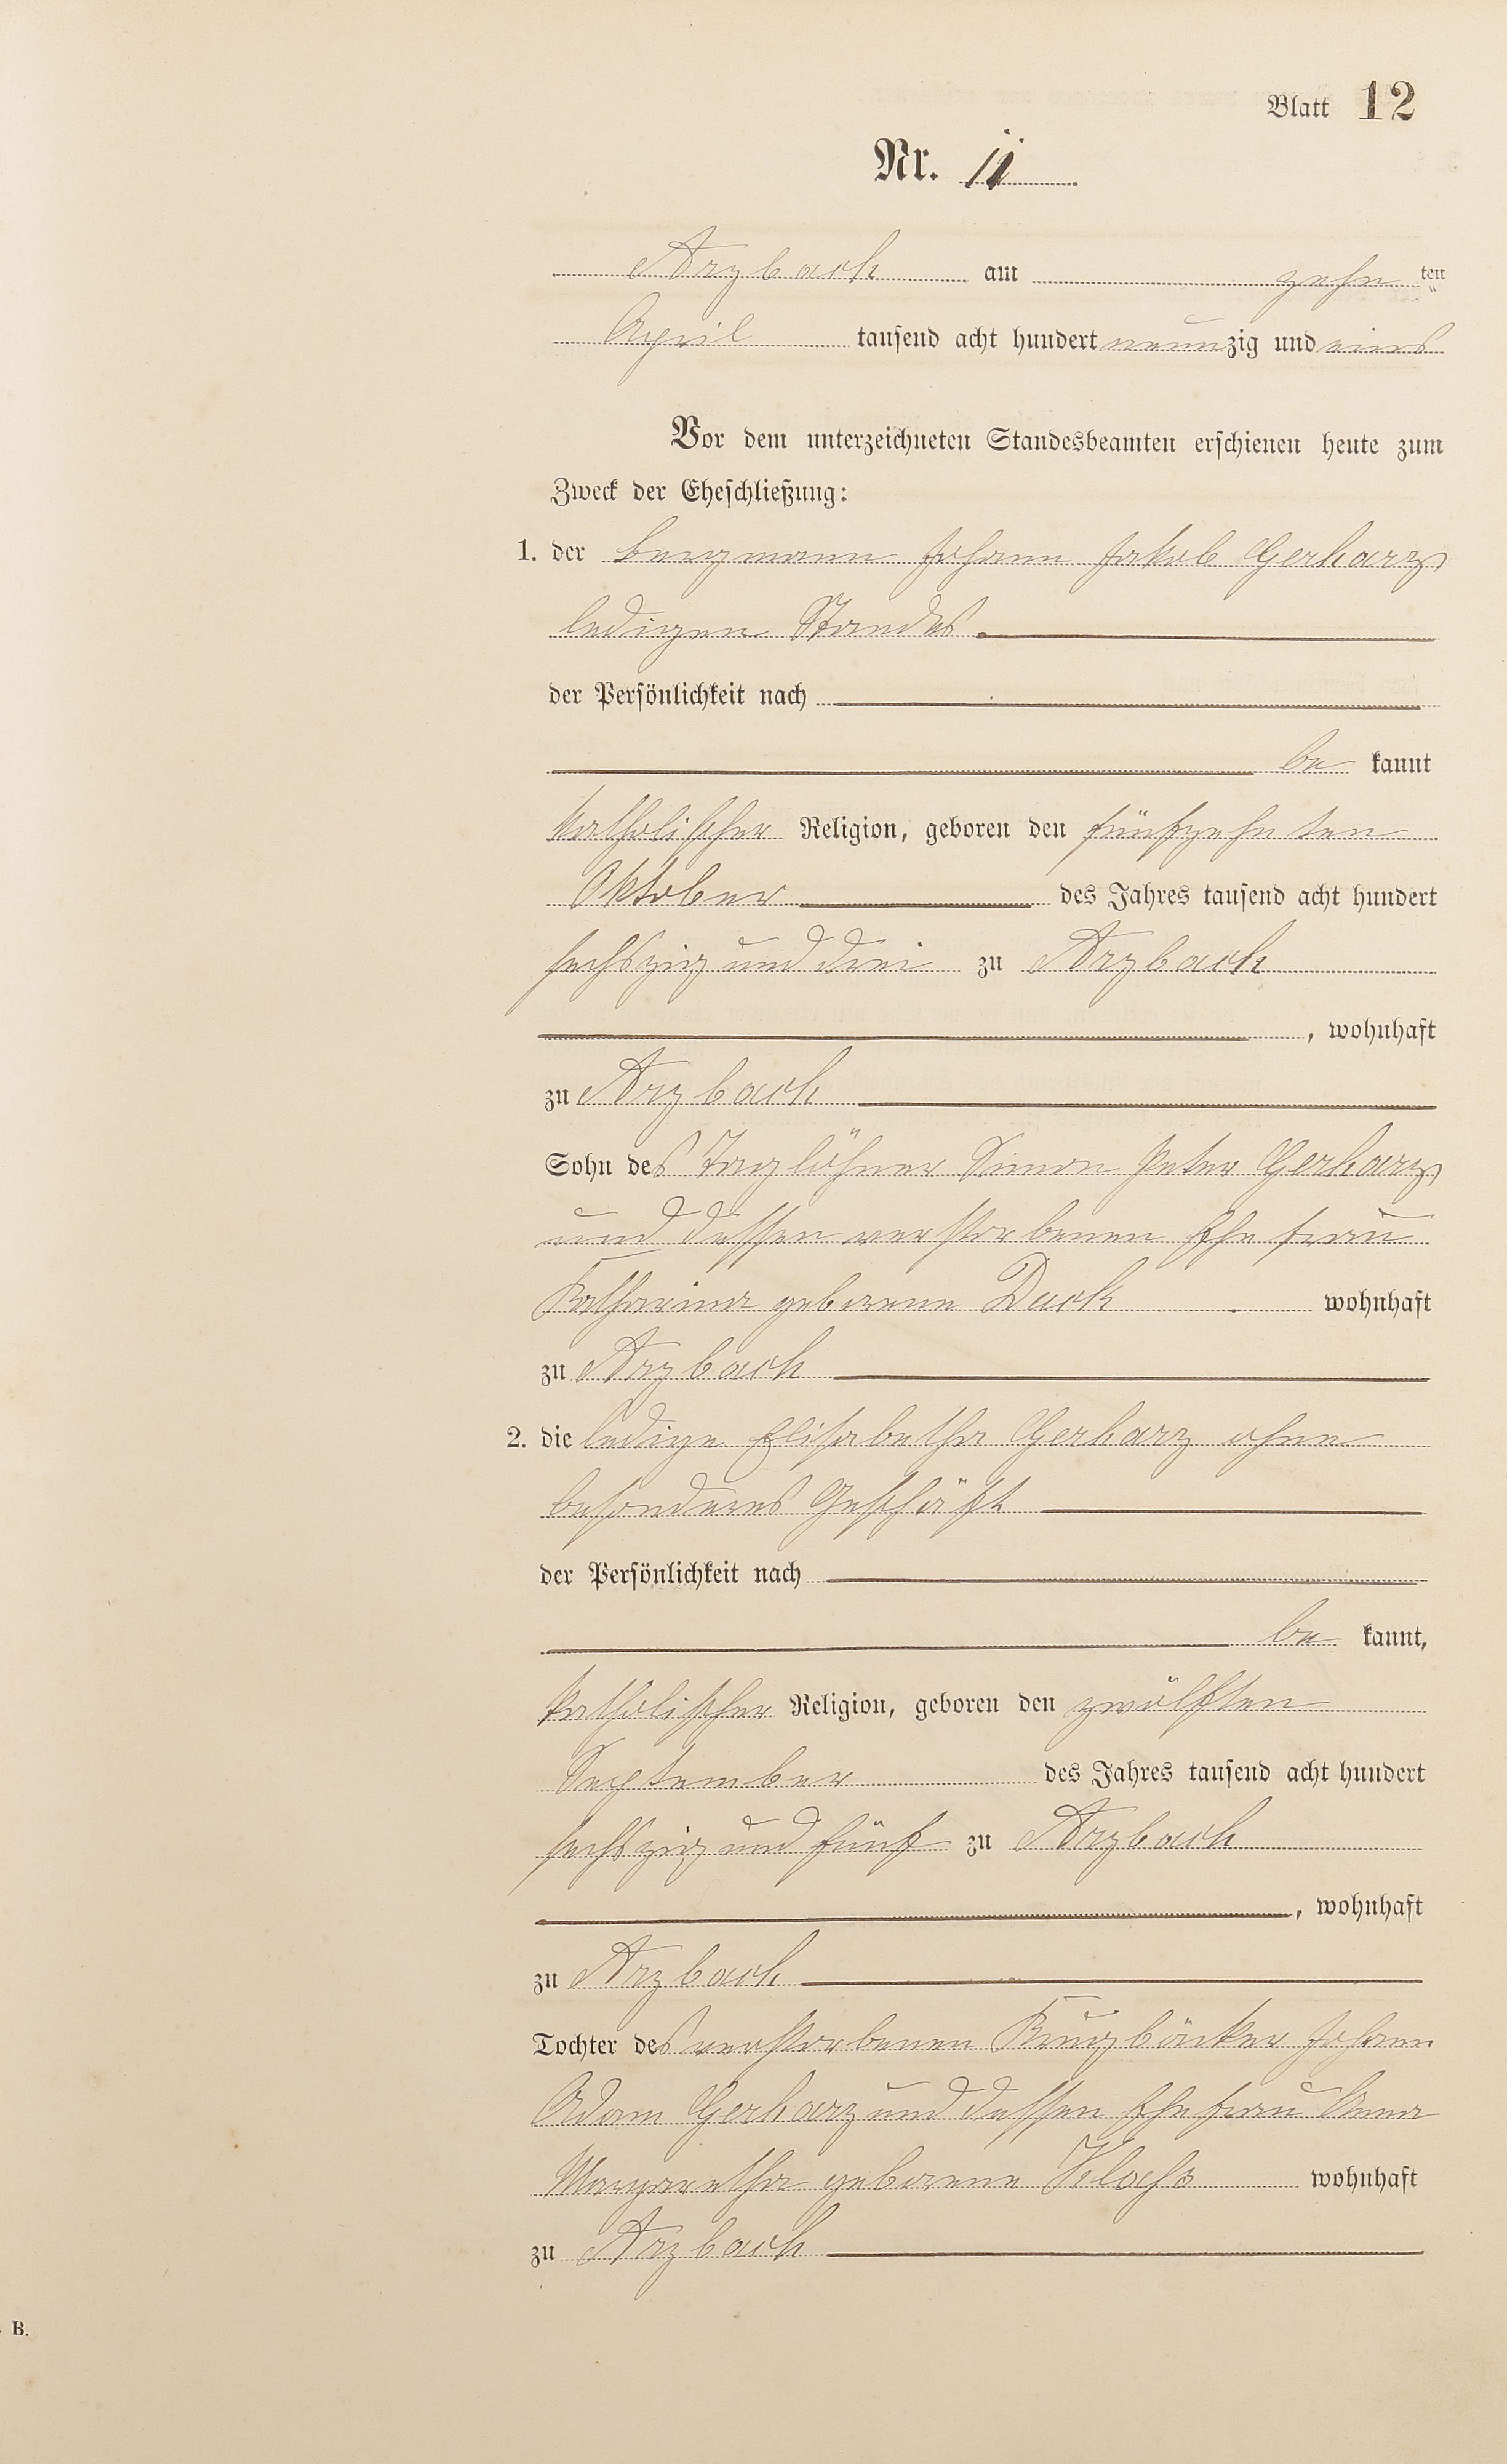 Blatt 12
Nr. 11
Arzbach am zehn ten
April tausend acht hundert neunzig und eins
Vor dem unterzeichneten Standesbeamten erschienen heute zum
Zweck der Eheschließung:
1. der Bergmann Johann Jakob Gerharz,
ledigen Standes.
der Persönlichkeit nach
be kannt
katholischer Religion, geboren den fünfzehnten
Oktober des Jahres tausend acht hundert
sechszig und drei zu Arzbach
, wohnhaft
zu Arzbach
Sohn des Taglöhner Simon Peter Gerharz,
und dessen verstorbenen Ehefrau
Katharina geborene Duck wohnhaft
zu Arzbach
2. die ledige Elisabetha Gerharz ohne
besonderes Geschäft
der Persönlichkeit nach
be kannt,
katholischer Religion, geboren den zwölften
September des Jahres tausend acht hundert
sechszig und fünf zu Arzbach
, wohnhaft
zu Arzbach
Tochter des verstorbenen Krugbäcker Johann
Adam Gerharz und dessen Ehefrau Anna
Margaretha geborene Klohs wohnhaft
zu Arzbach
B.